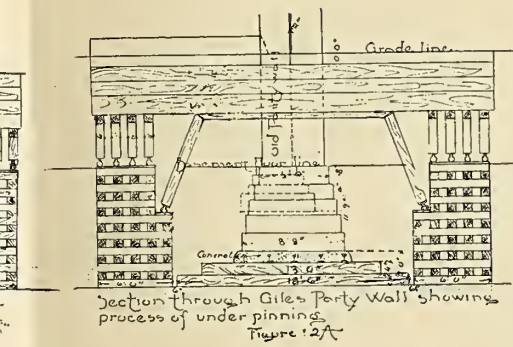 Grade line
Old Party Wall
Basement Floor line
8'8"
Concrete
13'0"
18'6"
6'0"
6'0"
Section through Giles Party Wall showing
process of under pinning
Figure: 2A